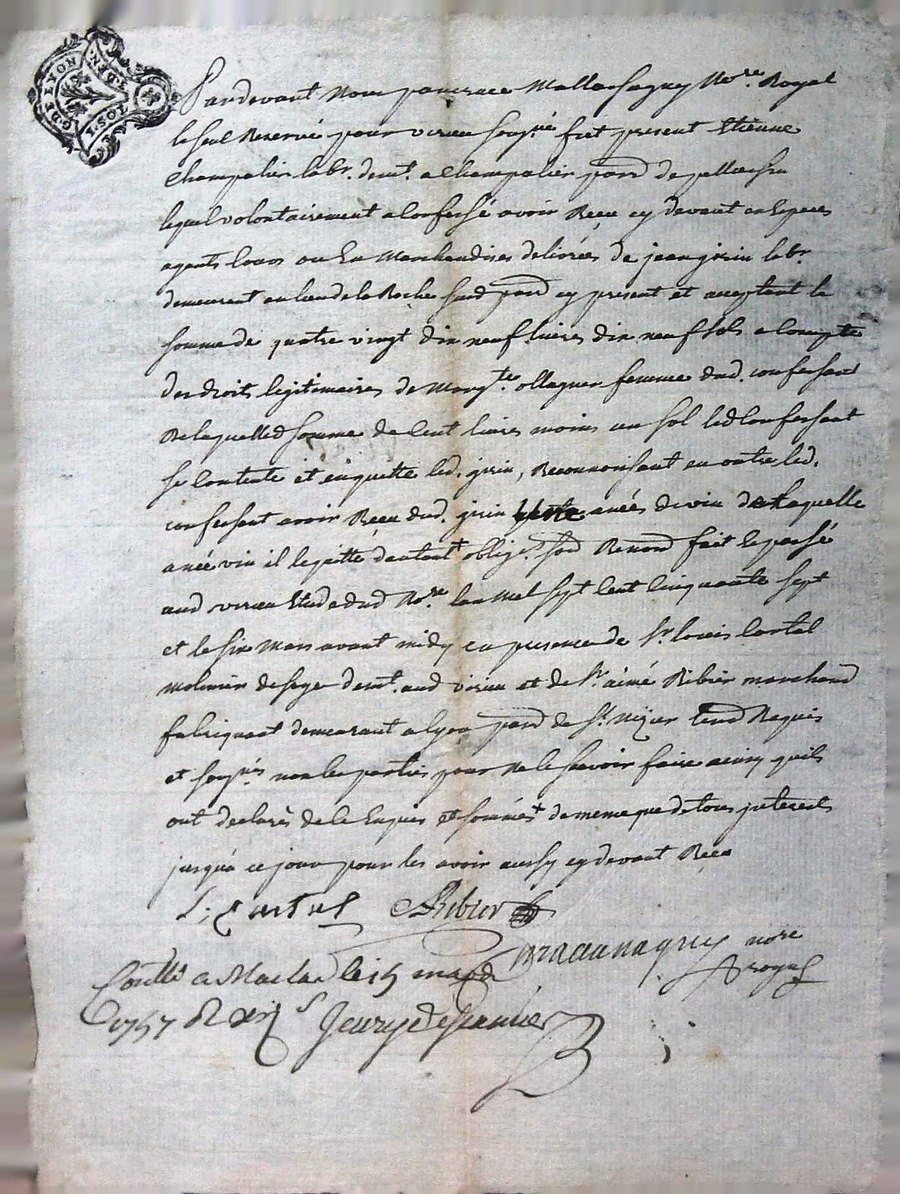 G. DE LYON
1 SOL 4 DEN.
Pardevant Nous pancrace Mallassagny No.re Royal
le seul Reservé pour virieu sousig.né fut present Etienne
Champalier lab.r dem.t a Champalier par.d de pellussin
lequel volontairement a Confessé avoir Receu cy devant en Especes
agents cours ou En Marchandises delivrées de jean jirin lab.r
demeurant au lieu de la Roche sur.d par.d cy present et acceptant la
somme de quatre vingt dix neuf livres dix neuf sols a Compte
des droits legitimaires de Marg.te ollagner femme dud. confessant
De laquelle d. somme de Cent livres moins un sol led. Confessant
se Contente et enquitte led. jirin, Reconnoissant en outre led.
confessant avoir Receu dud. jirin anées de vin de laquelle
anée vin il le quitte dautant + oblig. soud. Renond. fait le passé
aud virieu Etude dud No.re lan Mil sept Cent Cinquante sept
et le six Mars avant midy en presence de S.r louis Cartal
Moulinier de soye dem.t aud virieu et de S.r aimé Ribier marchand
fabriquant demeurant a lyon par.d de S.t Nizier tem.d Requis
et sousig.nés non les parties pour ne le scavoir faire ainsy quils
ont declarés de ce Enquis et sommés + de meme que de tous jnterests
jusqua ce jour pour les avoir aussy cy devant Receu
L; Cartal A Ribier
no.re royal
Coullé a Maclas le 15 mars
1757 R